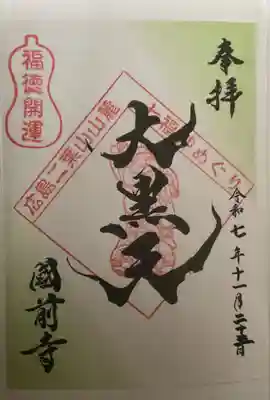 奉拝
令和七年十一月二十五日
大黒天
國前寺
福徳開運
広島二葉山山麓
七福神めぐり